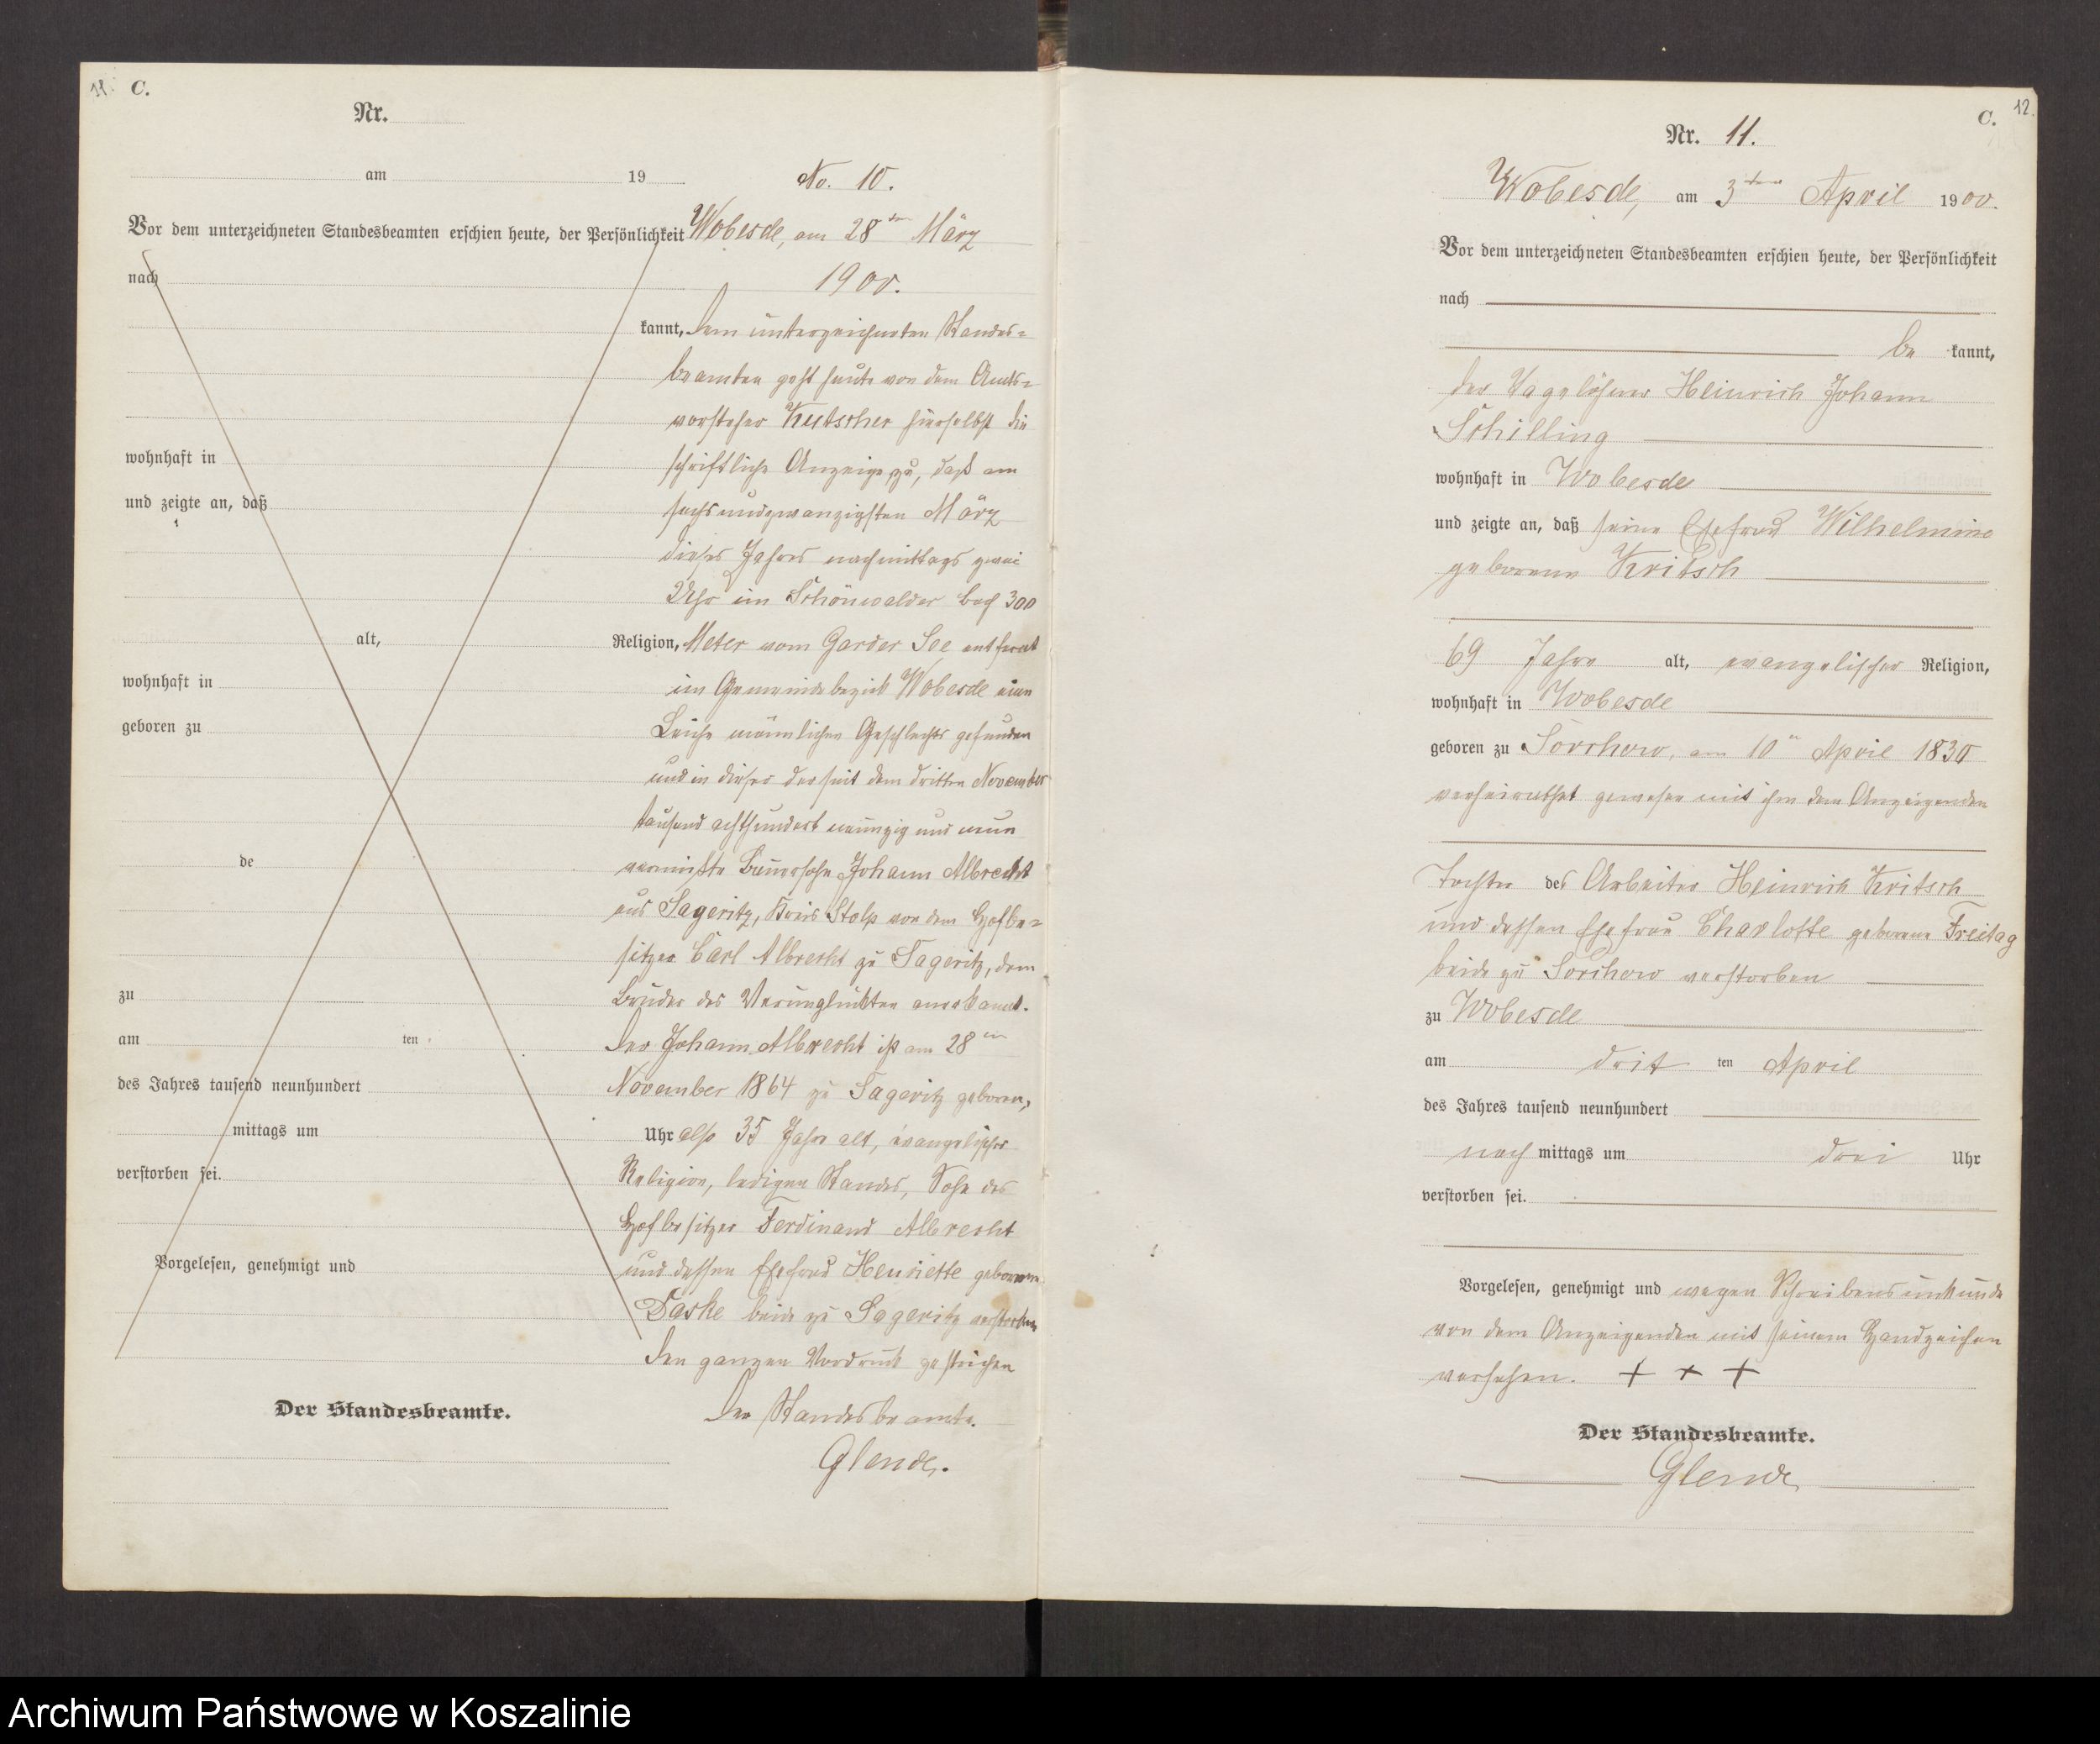 11. C.
Nr.
am 19
Vor dem unterzeichneten Standesbeamten erschien heute, der Persönlichkeit
nach
kannt,
wohnhaft in
und zeigte an, daß
alt, Religion,
wohnhaft in
geboren zu
de
zu
am ten
des Jahres tausend neunhundert
mittags um Uhr
verstorben sei.
Vorgelesen, genehmigt und
Der Standesbeamte.
No. 10.
Wobesde, am 28ten März
1900.
Dem unterzeichneten Standes=
beamten geht heute von dem Amts=
vorsteher Kutscher hierselbst die
schriftliche Anzeige zu, daß am
sechsundzwanzigsten März
dieses Jahres nachmittags zwei
Uhr im Schönwalder bach 300
Meter vom Garder See entfernt
im Gemeindebezirk Wobesde eine
Leiche männlichen Geschlechts gefunden
und in dieser der seit dem dritten November
tausend achthundert neunzig und neun
vermißte Bauersohn Johann Albrecht
aus Sageritz, Kreis Stolp von dem Hofbe=
sitzer Carl Albrecht zu Sageritz, dem
Bruder des Verunglückten anerkannt.
Der Johann Albrecht ist am 28en
November 1864 zu Sageritz geboren,
also 35 Jahre alt, evangelischer
Religion, ledigen Standes, Sohn des
Hofbesitzer Ferdinand Albrecht
und dessen Ehefrau Henriette geborene
Taske beide zu Sageritz verstorben
Den ganzen Vordruck gestrichen
Der Standesbeamte.
Glende.
C. 12.
Nr. 11.
Wobesde, am 3ten April 1900.
Vor dem unterzeichneten Standesbeamten erschien heute, der Persönlichkeit
nach
be kannt,
der Tagelöhner Heinrich Johann
Schilling
wohnhaft in Wobesde
und zeigte an, daß seine Ehefrau Wilhelmine
geborene Kritsch
69 Jahre alt, evangelischer Religion,
wohnhaft in Wobesde
geboren zu Sorchow, am 10en April 1830
verheirathet gewesen mit ihm dem Anzeigenden
Tochter des Arbeiter Heinrich Kritsch
und dessen Ehefrau Charlotte geborene Freitag
beide zu Sorchow verstorben
zu Wobesde
am drit ten April
des Jahres tausend neunhundert
nach mittags um drei Uhr
verstorben sei.
Vorgelesen, genehmigt und wegen Schreibensunkunde
von dem Anzeigenden mit seinem Handzeichen
versehen. + + +
Der Standesbeamte.
Glende
Archiwum Państwowe w Koszalinie